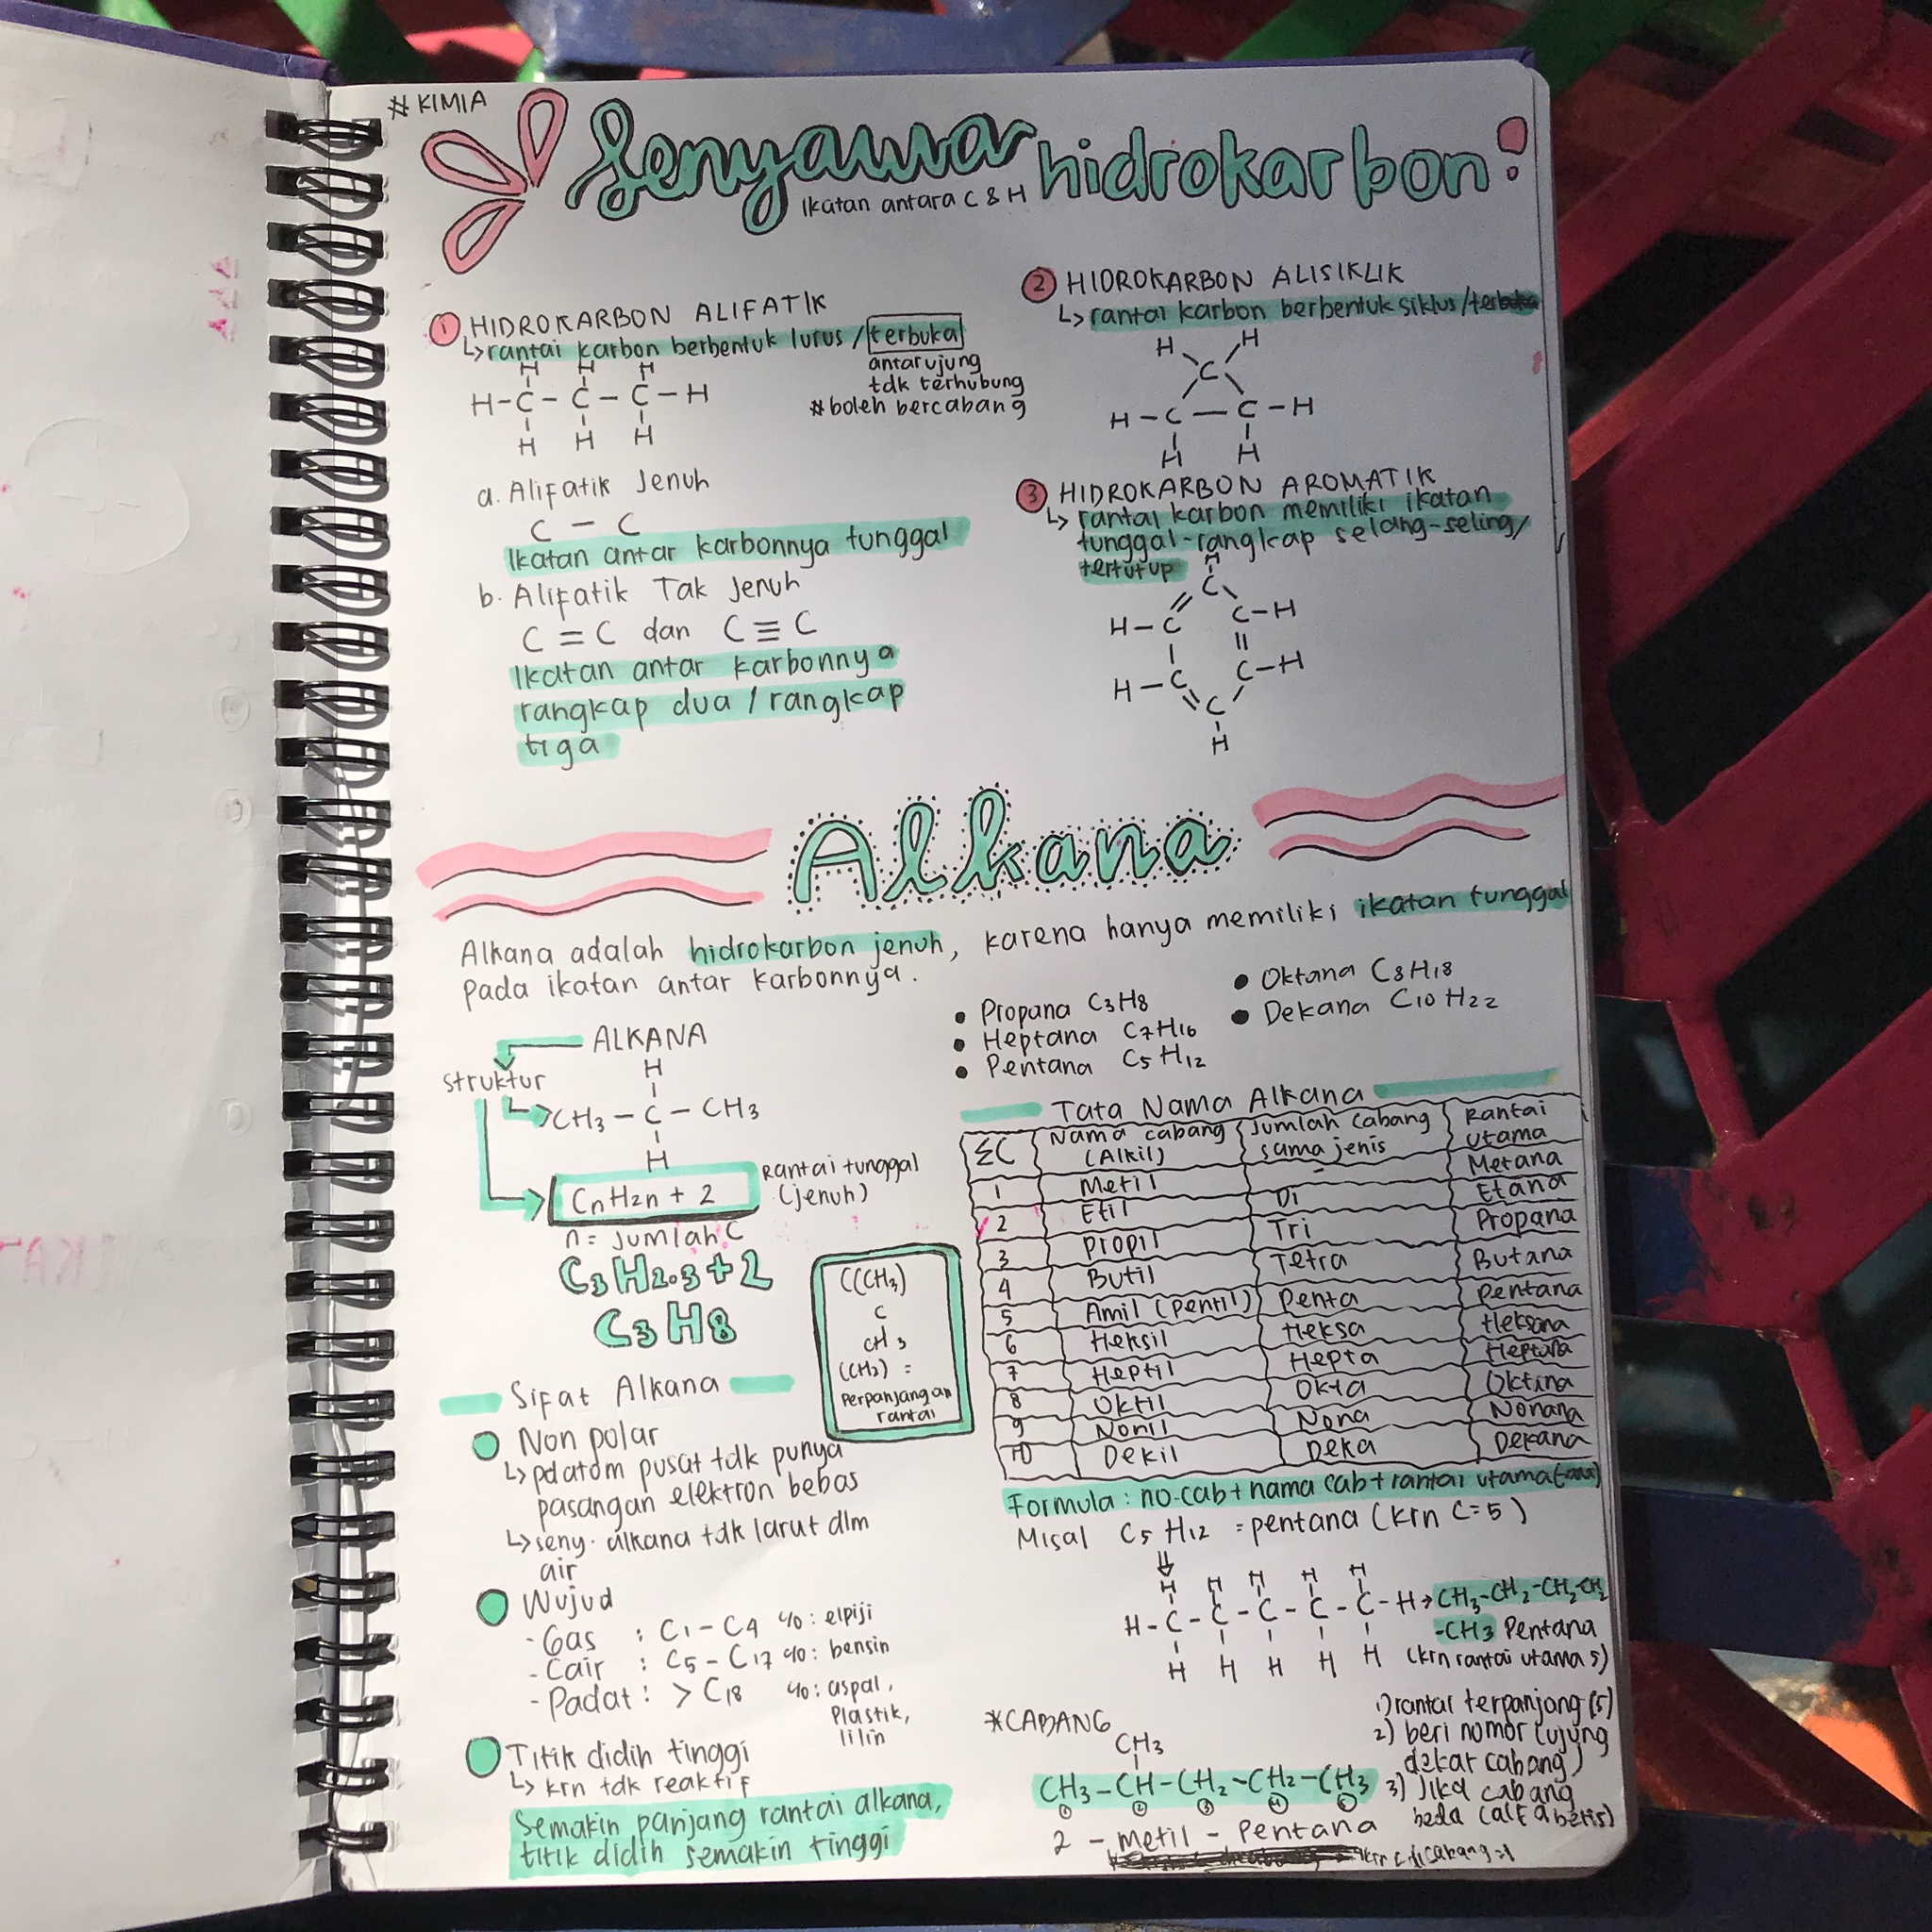 # KIMIA
Senyawa hidrokarbon:
Ikatan antara C & H
① HIDROKARBON ALIFATIK
↳ rantai karbon berbentuk lurus / terbuka
antar ujung
tdk terhubung
# boleh bercabang
H H H
H - C - C - C - H
H H H
a. Alifatik Jenuh
C - C
Ikatan antar karbonnya tunggal
b. Alifatik Tak Jenuh
C = C dan C ≡ C
Ikatan antar karbonnya
rangkap dua / rangkap
tiga
② HIDROKARBON ALISIKLIK
↳ rantai karbon berbentuk siklus /
H H
C
H - C — C - H
H H
③ HIDROKARBON AROMATIK
↳ rantai karbon memiliki ikatan
tunggal-rangkap selang-seling/
tertutup
H
C
H - C C - H
H - C C - H
C
H
Alkana
Alkana adalah hidrokarbon jenuh, karena hanya memiliki ikatan tunggal
pada ikatan antar karbonnya.
• Propana C3H8
• Heptana C7H16
• Pentana C5H12
• Oktana C8H18
• Dekana C10H22
ALKANA
struktur
H
CH3 - C - CH3
H
CnH2n + 2
Rantai tunggal
(jenuh)
n = jumlah C
C3H2.3+2
C3H8
((CH3)
C
CH3
(CH2) =
Perpanjangan
rantai
Sifat Alkana
Non polar
↳ pd atom pusat tdk punya
pasangan elektron bebas
↳ seny. alkana tdk larut dlm
air
Wujud
- Gas : C1 - C4 c/o : elpiji
- Cair : C5 - C17 c/o : bensin
- Padat : > C18 c/o : aspal,
Plastik,
lilin
Titik didih tinggi
↳ krn tdk reaktif
Semakin panjang rantai alkana,
titik didih semakin tinggi
Tata Nama Alkana
ΣC Nama cabang (Alkil) Jumlah Cabang sama jenis Rantai utama
1 Metil - Metana
2 Etil Di Etana
3 Propil Tri Propana
4 Butil Tetra Butana
5 Amil (Pentil) Penta Pentana
6 Heksil Heksa Heksana
7 Heptil Hepta Heptana
8 Oktil Okta Oktana
9 Nonil Nona Nonana
10 Dekil Deka Dekana
Formula : no-cab + nama cab + rantai utama (-ana)
Misal C5H12 = pentana (krn C=5)
⇓
H H H H H
H - C - C - C - C - C - H → CH3-CH2-CH2-CH2
-CH3 Pentana
H H H H H (krn rantai utama 5)
*CABANG
CH3
CH3 - CH - CH2 - CH2 - CH3
① ② ③ ④ ⑤
2 - Metil - Pentana
1) rantai terpanjang (5)
2) beri nomor (ujung
dekat cabang)
3) Jika cabang
beda (alfabetis)
krn c di cabang = 1